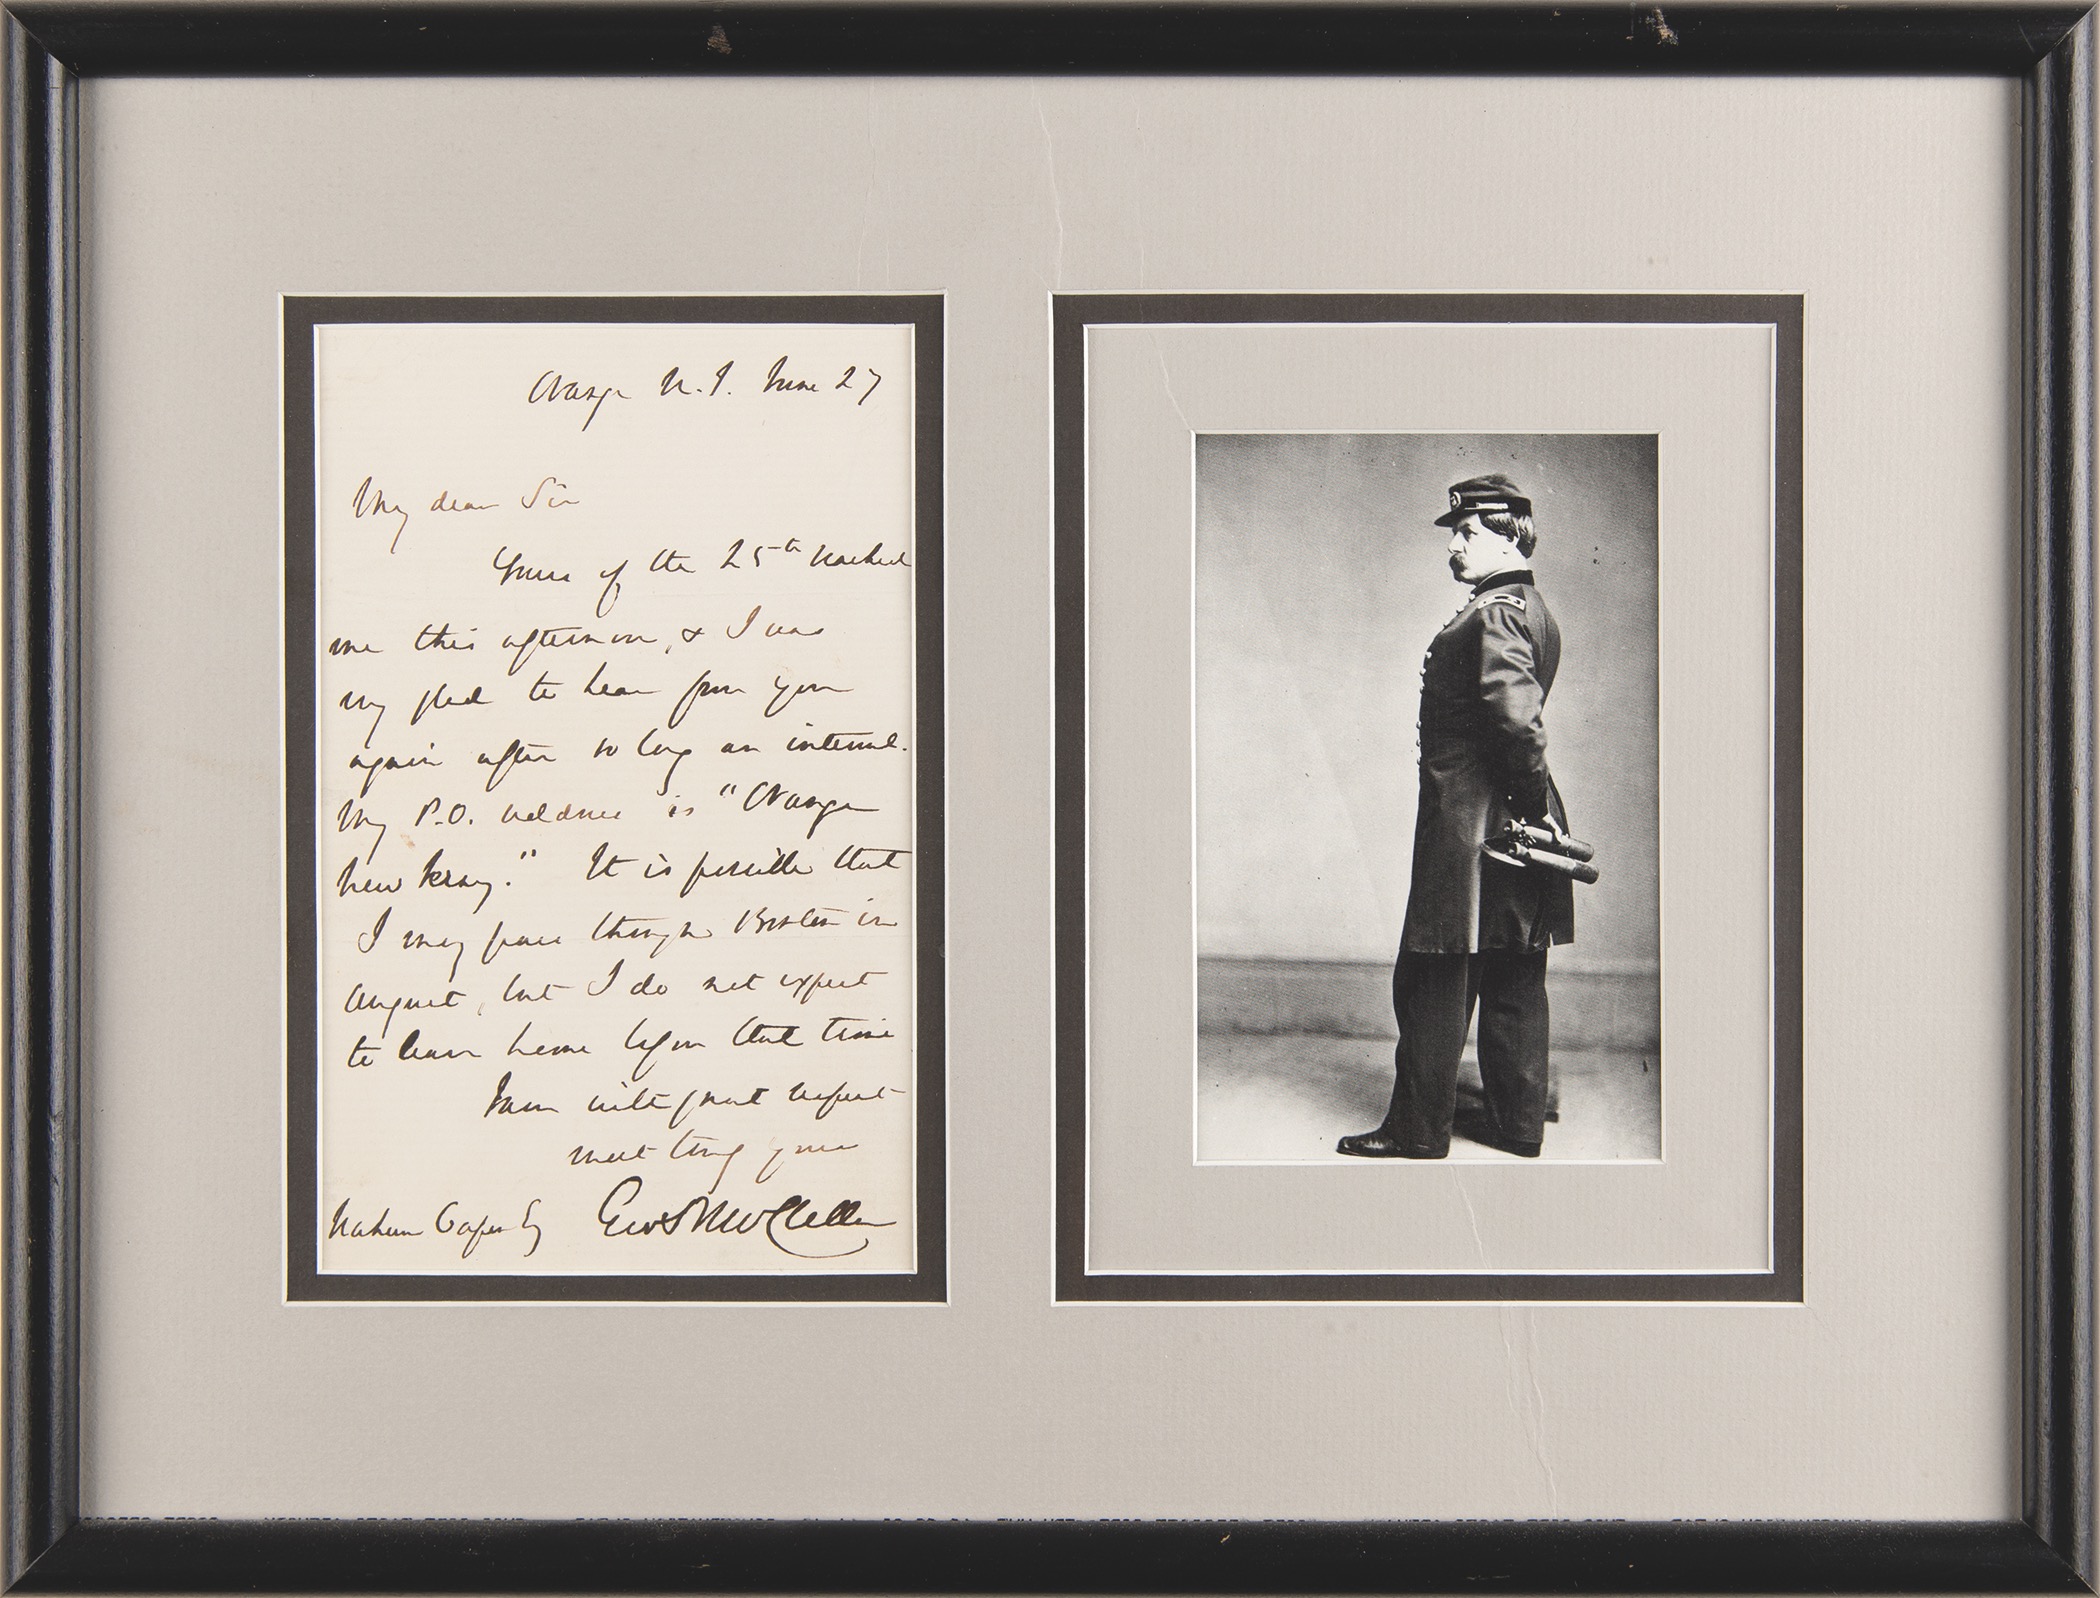 Orange N.J. June 27
My dear Sir
Yours of the 25th reached
me this afternoon, & I was
very glad to hear from you
again after so long an interval.
My P.O. address is "Orange
New Jersey." It is possible that
I may pass through Boston in
August, but I do not expect
to leave home before that time
I am with great respect
most truly yours
Geo B McClellan
Nahum Capen Esq